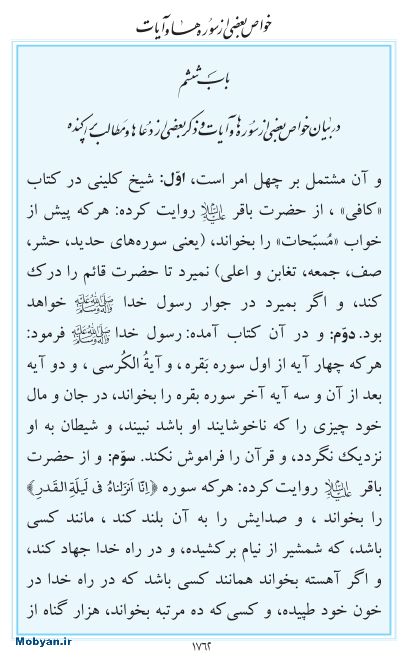 خواص بعضی از سوره‌ها و آیات
باب ششم
در بیان خواص بعضی از سوره‌ها و آیات و ذکر بعضی از دعاها و مطالب پراکنده
و آن مشتمل بر چهل امر است، اوّل: شیخ کلینی در کتاب
«کافی» ، از حضرت باقر علیه‌السلام روایت کرده: هرکه پیش از
خواب «مُسبّحات» را بخواند، (یعنی سوره‌های حدید، حشر،
صف، جمعه، تغابن و اعلی) نمیرد تا حضرت قائم را درک
کند، و اگر بمیرد در جوار رسول خدا ﷺ خواهد
بود. دوّم: و در آن کتاب آمده: رسول خدا ﷺ فرمود:
هرکه چهار آیه از اول سوره بَقره ، و آیةُ الکُرسی ، و دو آیه
بعد از آن و سه آیه آخر سوره بقره را بخواند، در جان و مال
خود چیزی را که ناخوشایند او باشد نبیند، و شیطان به او
نزدیک نگردد، و قرآن را فراموش نکند. سوّم: و از حضرت
باقر علیه‌السلام روایت کرده: هرکه سوره ﴿اِنّا اَنزَلناهُ فی لَیلَةِ القَدرِ﴾
را بخواند ، و صدایش را به آن بلند کند ، مانند کسی
باشد، که شمشیر از نیام برکشیده، و در راه خدا جهاد کند،
و اگر آهسته بخواند همانند کسی باشد که در راه خدا در
خون خود طپیده، و کسی‌که ده مرتبه بخواند، هزار گناه از
Mobyan.ir
۱۷۶۲